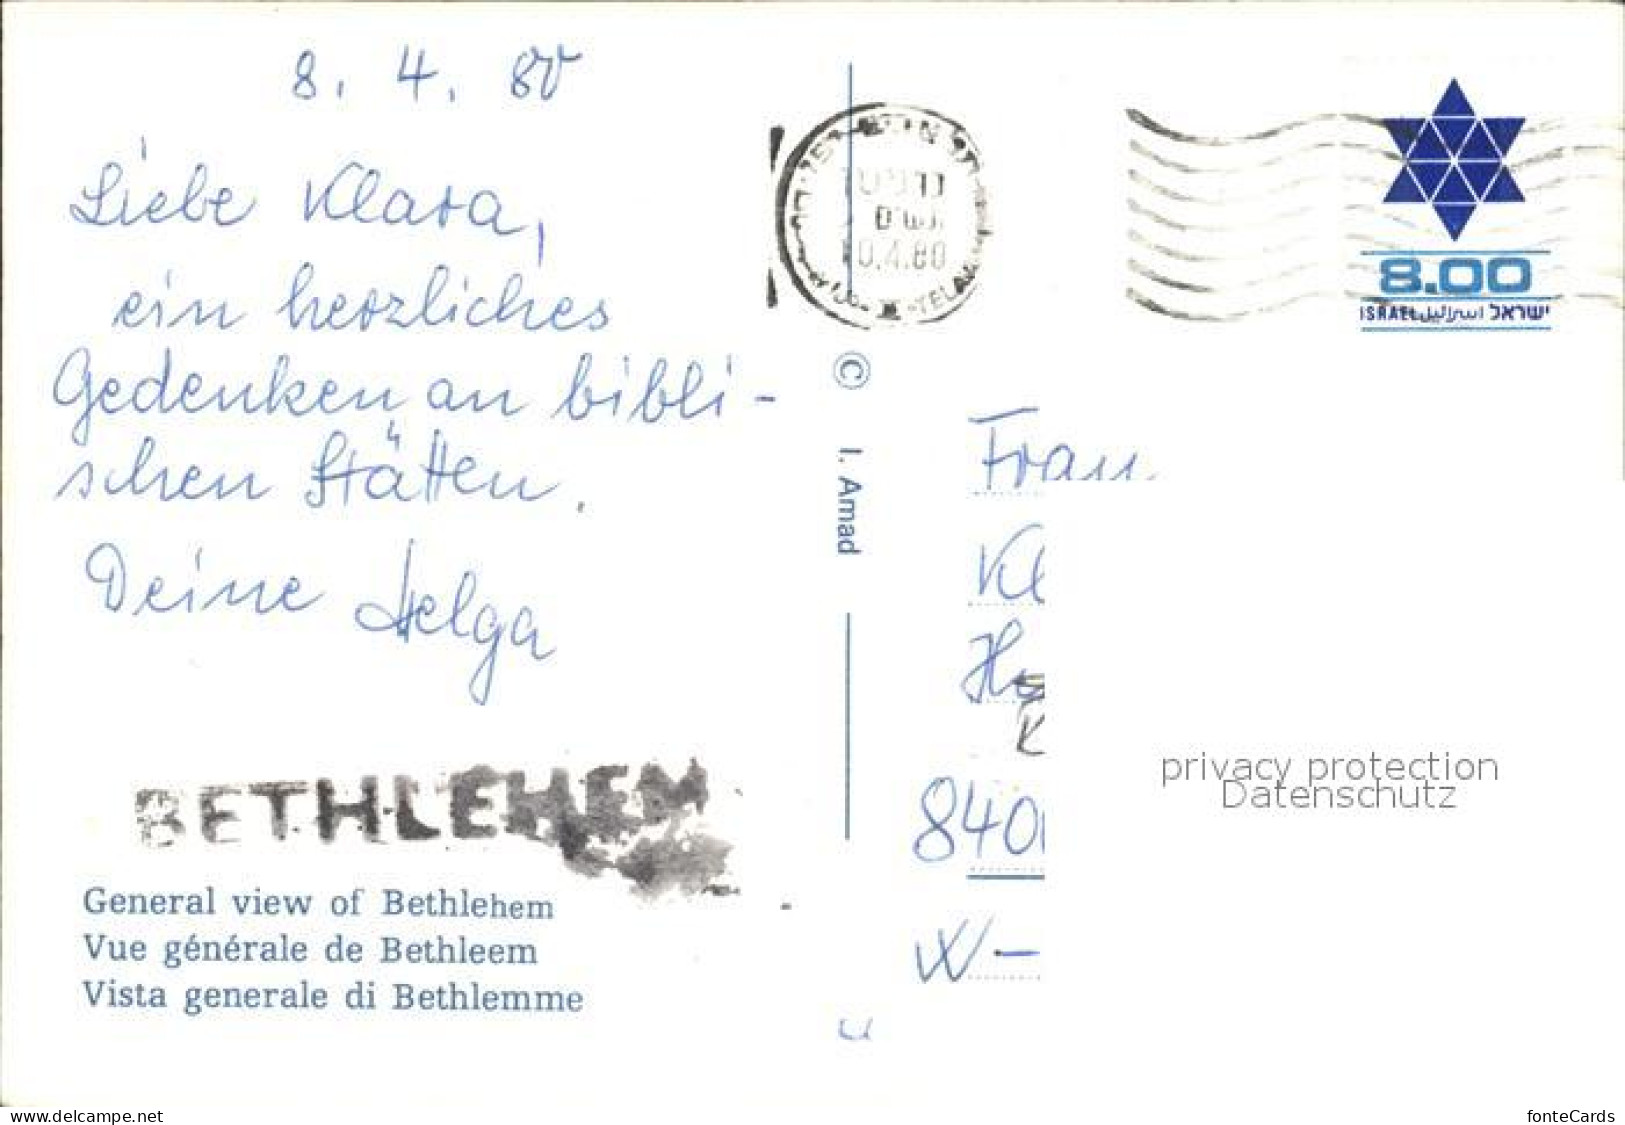 8. 4. 80
Liebe Klara,
ein herzliches
Gedenken an bibli-
schen Stätten.
Deine Helga
BETHLEHEM
General view of Bethlehem
Vue générale de Bethleem
Vista generale di Bethlemme
© I. Amad
0.4.80
8.00
ISRAEL اسرائيل ישראל
Frau
Kl
Hu
K
840
W-
privacy protection
Datenschutz
www.delcampe.net
fonteCards